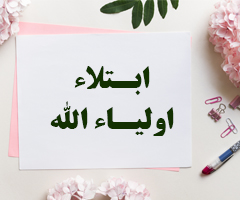 ابتلاء
اولياء الله